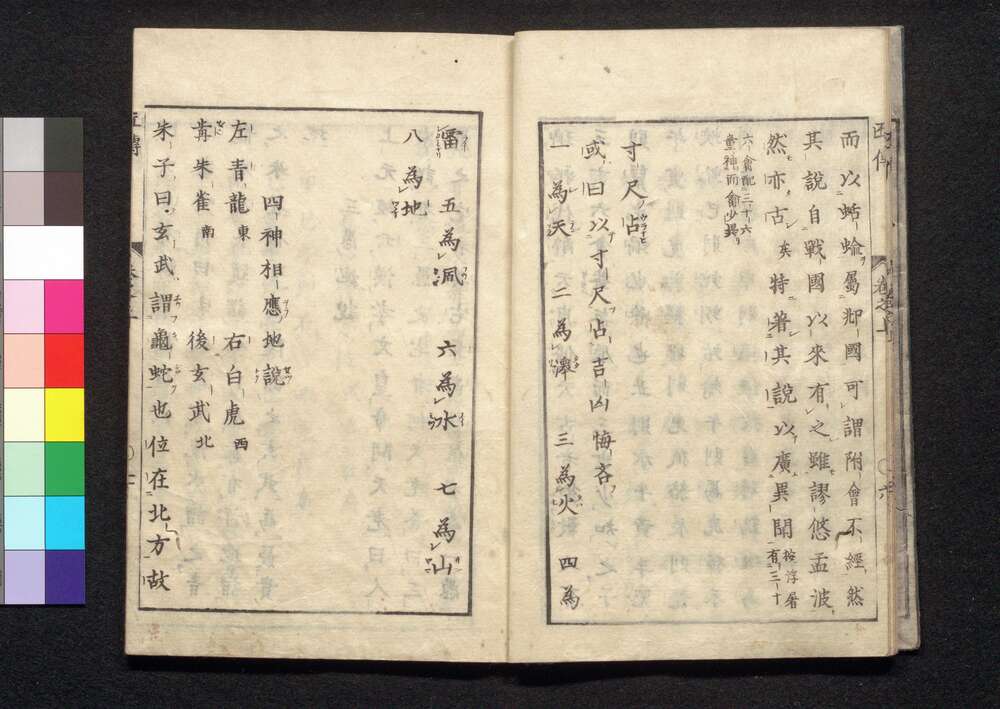 而以蛞蝓屬郷國可謂附會不經然
其說自戰國以來有之雖謬悠孟波
然亦古矣特著其說以廣異聞按浮屠有三十
六禽配三十六童神而禽少異
寸尺占
或曰以寸尺占吉凶悔吝
一為天 二為澤 三為火 四為
雷 五為風 六為水 七為山
八為地
四神相應地說
左青龍東 右白虎西
前朱雀南 後玄武北
朱子曰玄武謂龜蛇也位在北方故